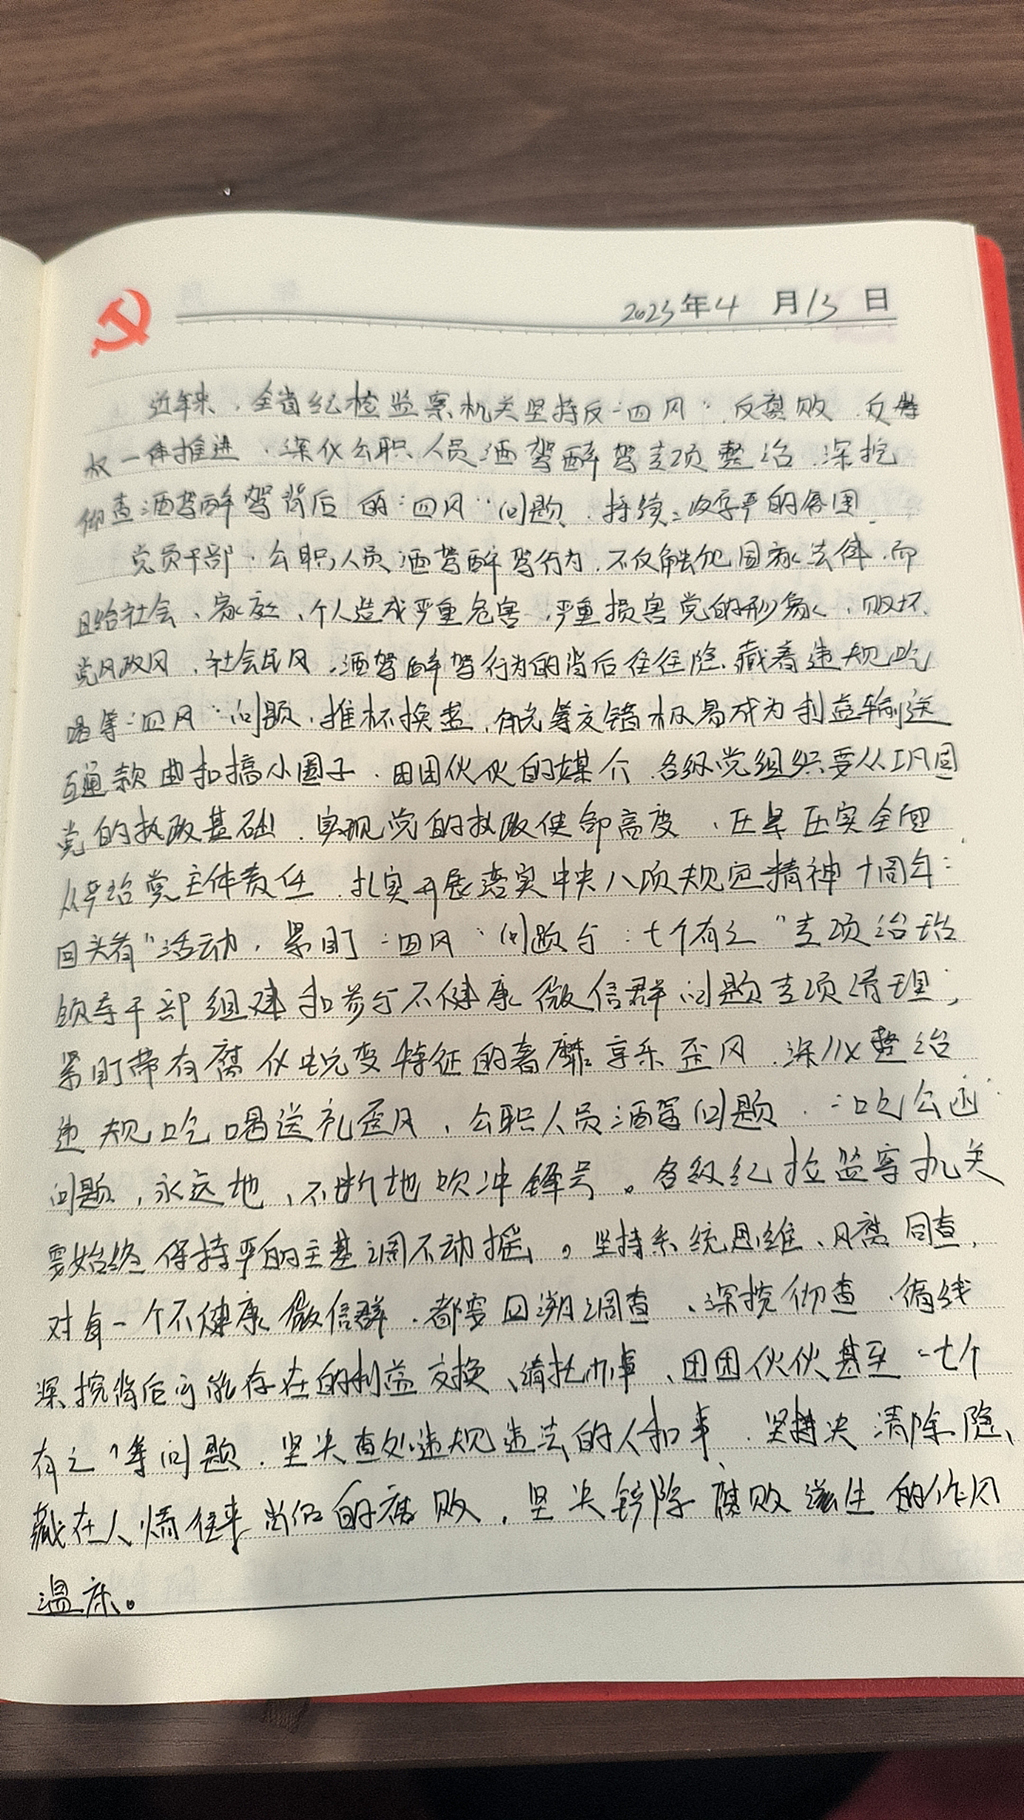 2023年4月13日
近年来，全省纪检监察机关坚持反“四风”，反腐败，反特
权一体推进，深化公职人员酒驾醉驾专项整治，深挖
彻查酒驾醉驾背后的“四风”问题，持续
党员干部、公职人员酒驾醉驾行为，不仅触犯国家法律，而
且给社会、家庭、个人造成严重危害，严重损害党的形象，败坏
党风政风，社会民风，酒驾醉驾行为的背后往往隐藏着违规吃
喝等“四风”问题，推杯换盏，觥筹交错极易成为利益输送
互通款曲和搞小圈子、团团伙伙的媒介，各级党组织要从巩固
党的执政基础、实现党的执政使命高度，压紧压实全面
从严治党主体责任，扎实开展落实中央八项规定精神十周年“
回头看”活动，紧盯“四风”问题与“七个有之”专项治理
领导干部组建和参与不健康微信群问题专项清理，
紧盯带有腐化蜕变特征的奢靡享乐歪风，深化整治
违规吃喝送礼歪风，公职人员酒驾问题，“一口吃公函”
问题，永远地、不断地吹冲锋号。各级纪检监察机关
要始终保持严的主基调不动摇。坚持系统思维、风腐同查，
对每一个不健康微信群，都要回溯调查、深挖彻查、循线
深挖背后可能存在的利益交换、请托办事、团团伙伙甚至“七个
有之”等问题，坚决查处违规违法的人和事，坚持决清除隐
藏在人情往来当做的腐败，坚决铲除腐败滋生的作风
温床。